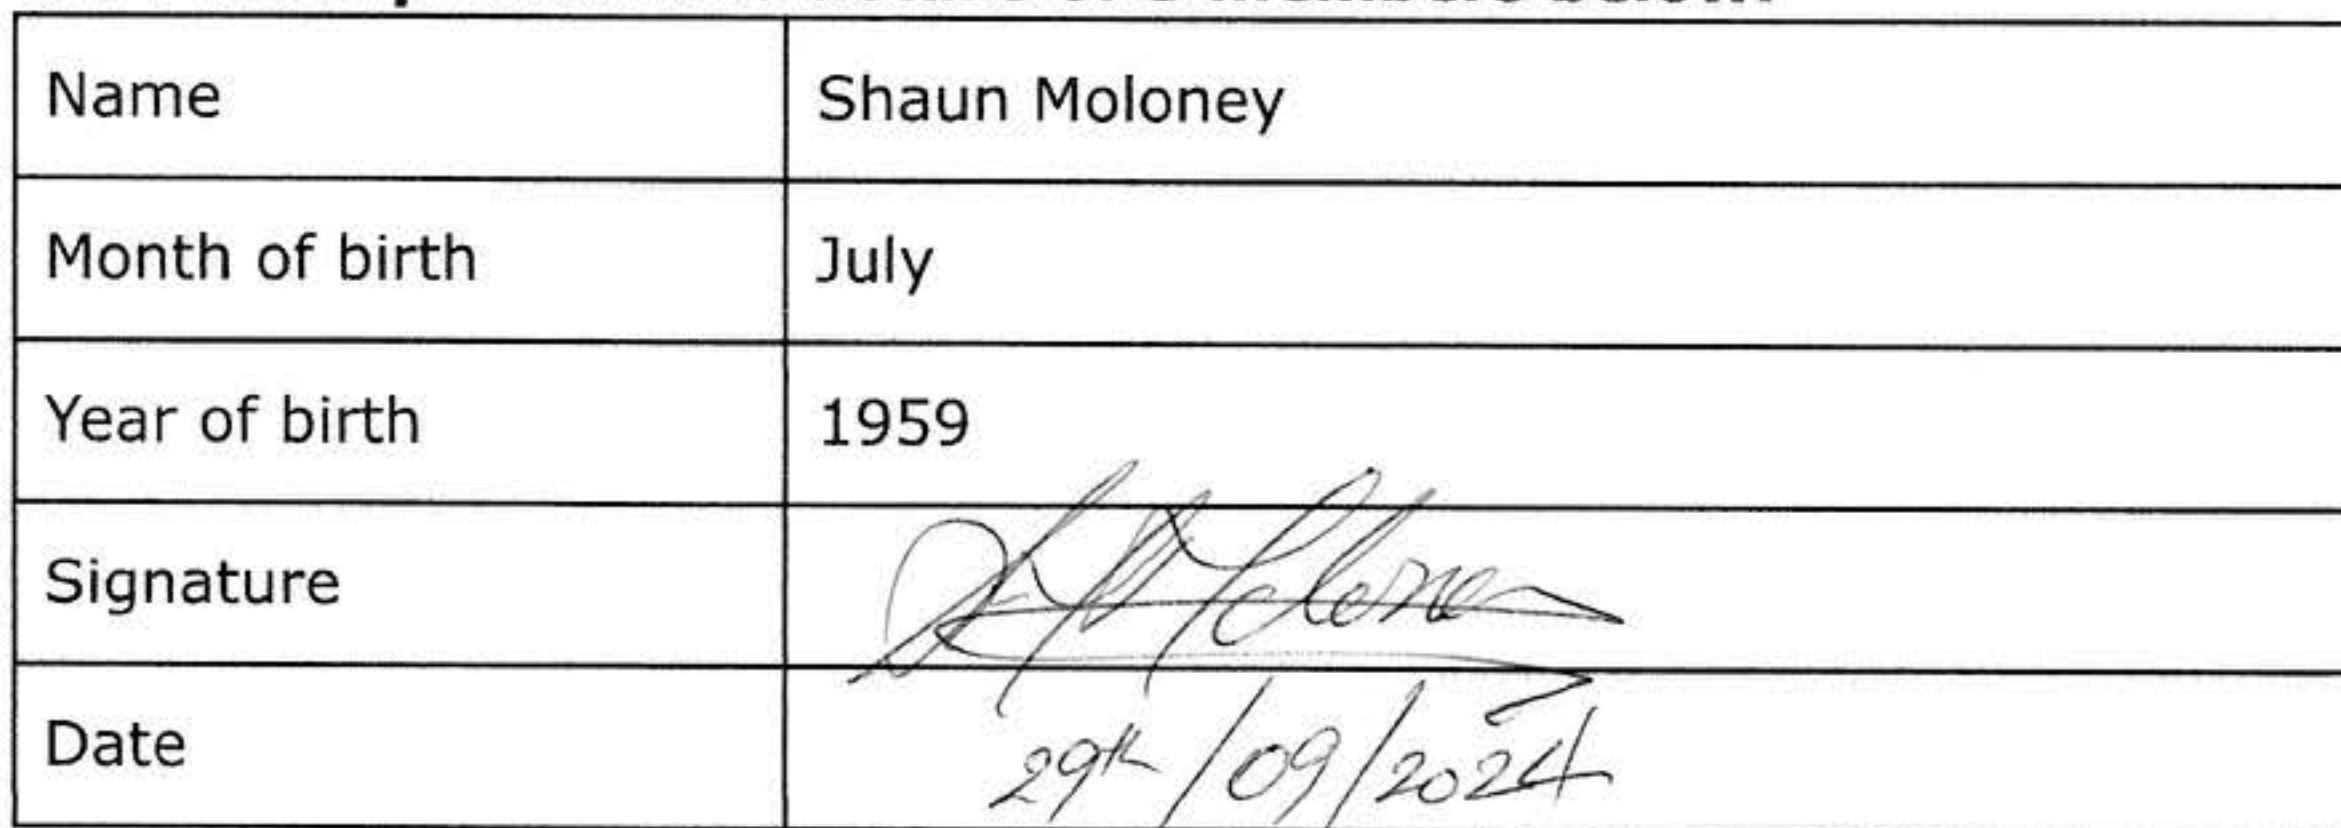 members below.
Name Shaun Moloney
Month of birth July
Year of birth 1959
Signature
Date 29th/09/2024